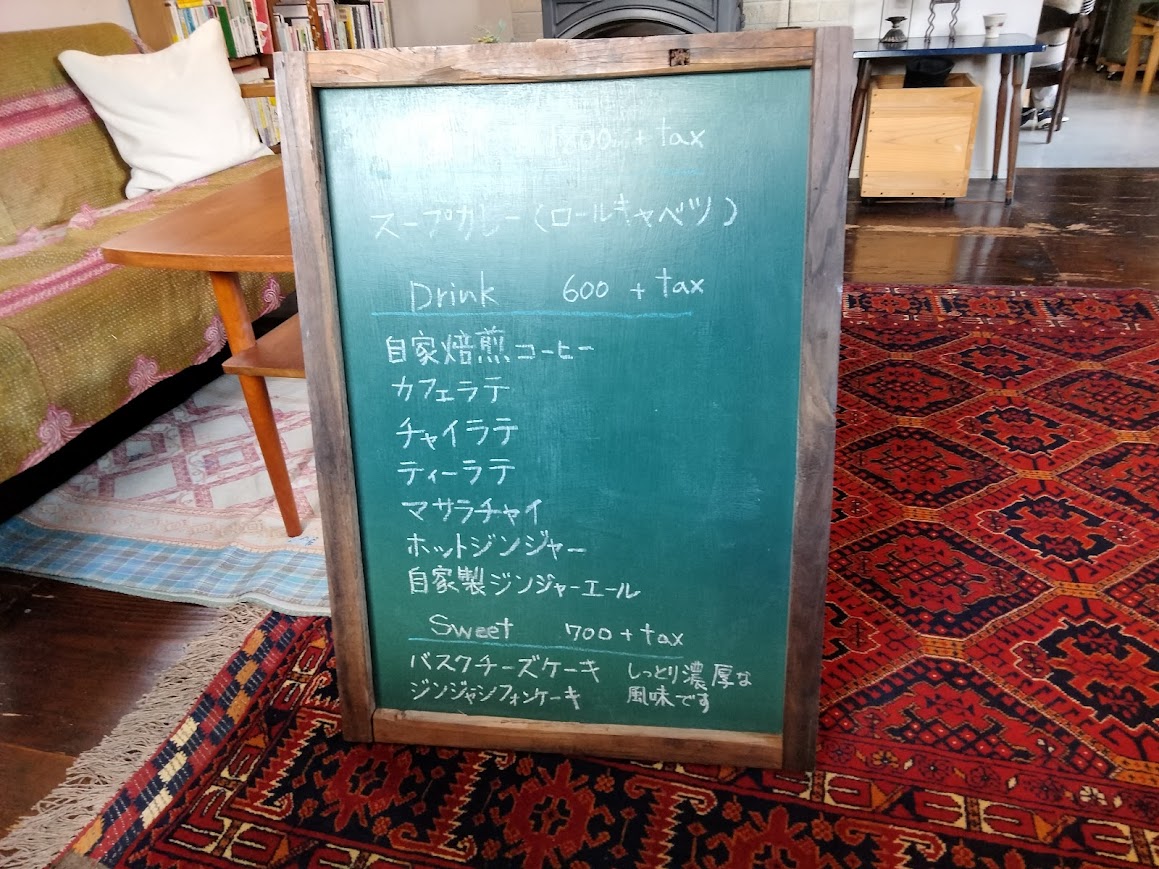 + tax
スープカレー(ロールキャベツ)
Drink 600 + tax
自家焙煎コーヒー
カフェラテ
チャイラテ
ティーラテ
マサラチャイ
ホットジンジャー
自家製ジンジャーエール
Sweet 700 + tax
バスクチーズケーキ しっとり濃厚な
ジンジャシフォンケーキ 風味です